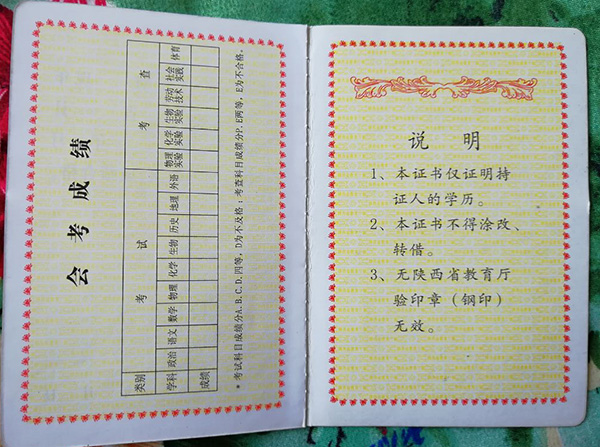 会考成绩
类别 考试 考查
学科 政治 语文 数学 物理 化学 生物 历史 地理 外语 物理实验 化学实验 生物实验 劳动技术 社会实践 体育
成绩
*考试科目成绩分A.B.C.D.四等，D为不合格；考查科目成绩分P.E两等，E为不合格。
说 明
1、本证书仅证明持
证人的学历。
2、本证书不得涂改、
转借。
3、无陕西省教育厅
验印章（钢印）
无效。